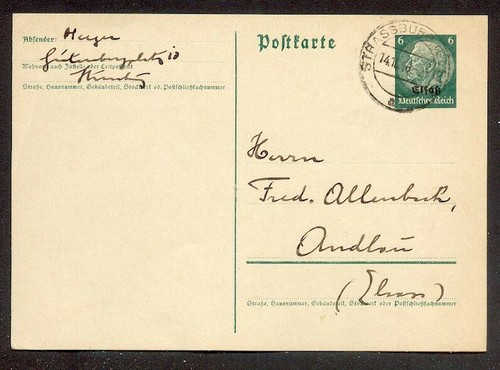 Absender: Heyer
Gutenbergplatz 10
Wohnort, auch Zustell- oder Leitpostamt
Straße, Hausnummer, Gebäudeteil, Stockwerk od. Postschließfachnummer
Postkarte
6 6
Elsaß
Deutsches Reich
STRASSBU
Herrn
Fred. Allenbach,
Andlau
(Elsass)
Straße, Hausnummer, Gebäudeteil, Stockwerk oder Postschließfachnummer